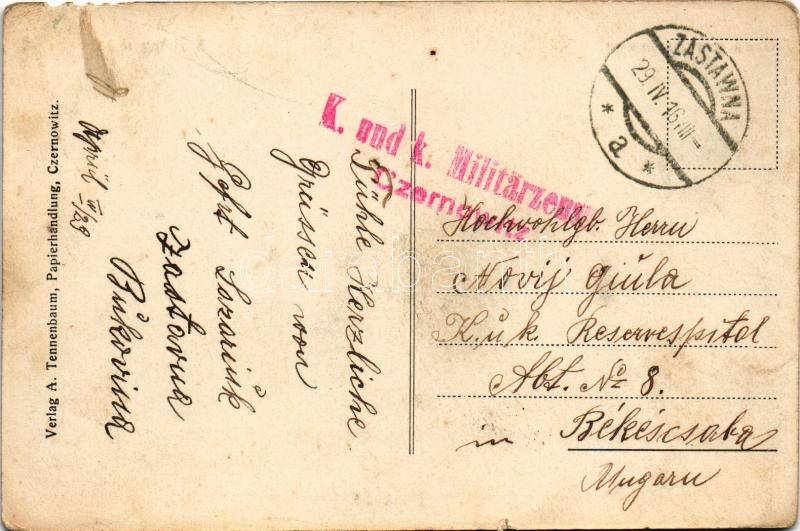 Verlag A. Tennenbaum, Papierhandlung, Czernowitz.
April IV/29
Fühle Herzliche
Grüssen von
Zastavna
Bukovina
K. und k. Militärzensur
Czernowitz
ZASTAWNA
29. IV. 16
* a *
Hochwohlgb. Herru
Novij Giula
K. u k Reservespitol
Abt. No 8.
in Békéscsaba
Ungarn
darabanth